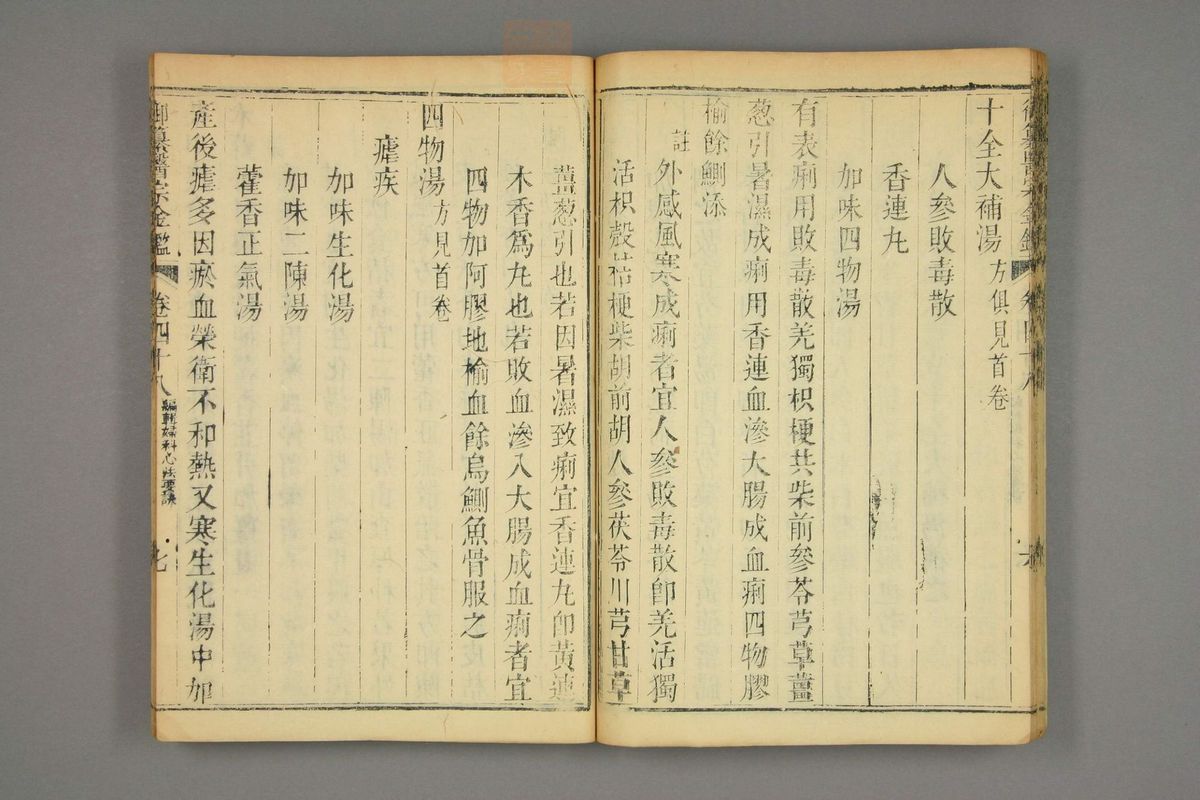 御纂醫宗金鑑 卷四十八 六
十全大補湯 方俱見首卷
人參敗毒散
香連丸
加味四物湯
有表痢用敗毒散羌獨枳梗共柴前參苓芎草薑
葱引暑濕成痢用香連血滲大腸成血痢四物膠
榆餘鰂添
註 外感風寒成痢者宜人參敗毒散卽羌活獨
活枳殼桔梗柴胡前胡人參茯苓川芎甘草
薑葱引也若因暑濕致痢宜香連丸卽黃連
木香爲丸也若敗血滲入大腸成血痢者宜
四物加阿膠地榆血餘烏鰂魚骨服之
四物湯 方見首卷
瘧疾
加味生化湯
加味二陳湯
藿香正氣湯
產後瘧多因瘀血榮衛不和熱又寒生化湯中加
御纂醫宗金鑑 卷四十八 編輯婦科心法要訣 七